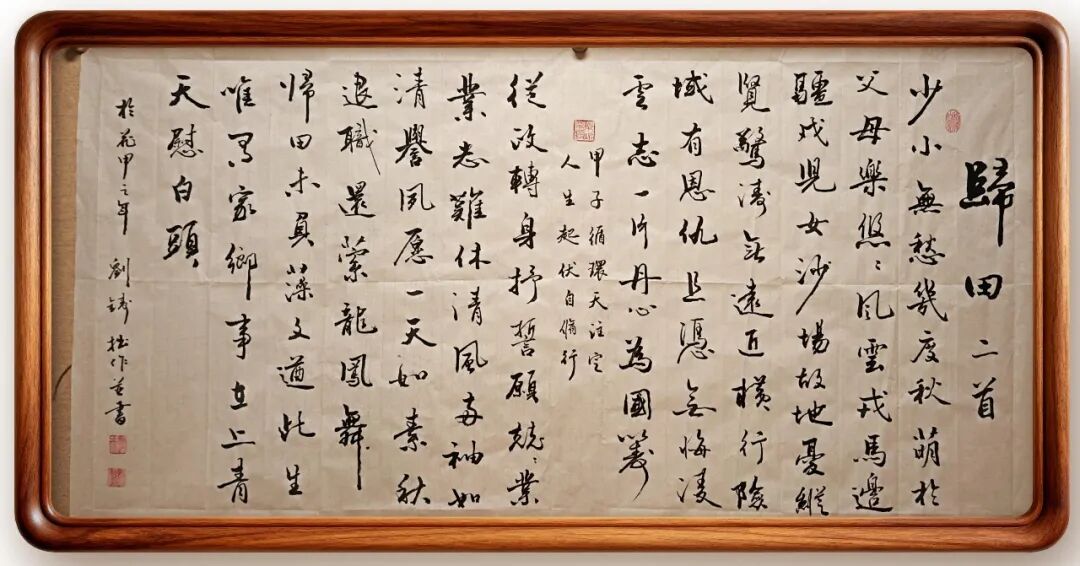 歸田二首
少小無愁幾度秋萌於
父母樂悠〻風雲戎馬邊
疆戍兒女沙場故地憂縱
覽驚濤無遠近橫行險
域有恩仇且憑無悔凌
雲志一片丹心為國籌
甲子循環天注定
人生起伏自脩行
從政轉身抒誓願兢〻業
業志難休清風兩袖如
清譽夙愿一天如素秋
退職還縈龍鳳舞
帰田未負藻文遒此生
唯家鄉事直上青
天慰白頭
於花甲之年 劉作并書